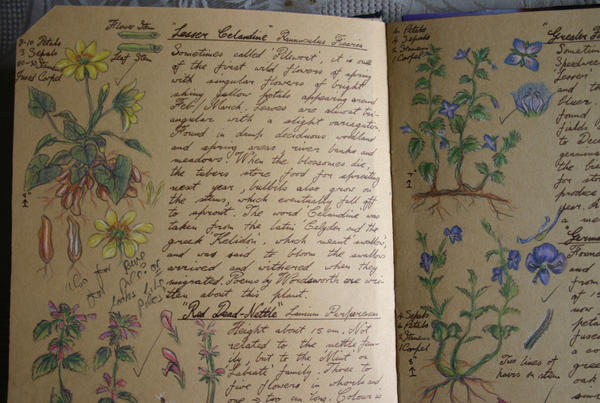 Flower Stem
Leaf Stem
8-10 Petals
3 Sepals
"Lesser Celandine" Ranunculus Ficaria
Sometimes called 'Pilewort', it is one
of the first wild flowers of spring
with singular flowers of bright
shiny yellow petals appearing around
Feb/March. Leaves are almost tri-
angular with a slight variagation.
Found in damp deciduous woodland
and spring areas, river banks and
meadows. When the blossomes die,
the tubers store food for sprouting
next year, bulbils also grow on
the stems, which eventually fall off
to sprout. The word 'Celandine' was
taken from the latin and the
greek 'Kelidon', which meant swallow,
and was said to bloom the swallow
arrived and withered when they
migrated. Poems by Wordsworth are wri-
tten about this plant.
"Red Dead-Nettle" Lamium Purpureum
Height about 15 cm. Not
related to the nettle fam-
ily but to the Mint or
'Labiate' family. Three to
five flowers in whorls and
one two cm long. Colour is
4 Petals
4 Sepals
2 Stamens
1 Carpel
"Greater
Sometim
Speedwe
lesser
and th
bluer.
found
fields
to Dece
germin
the br
for sto
produce
year. H
a me
"Germ
Found
and
from
of 1
now
peta
fused
a co
gree
oak
4 Sepals
4 Petals
2 Stamens
1 Carpel
Two lines of
hairs on stem